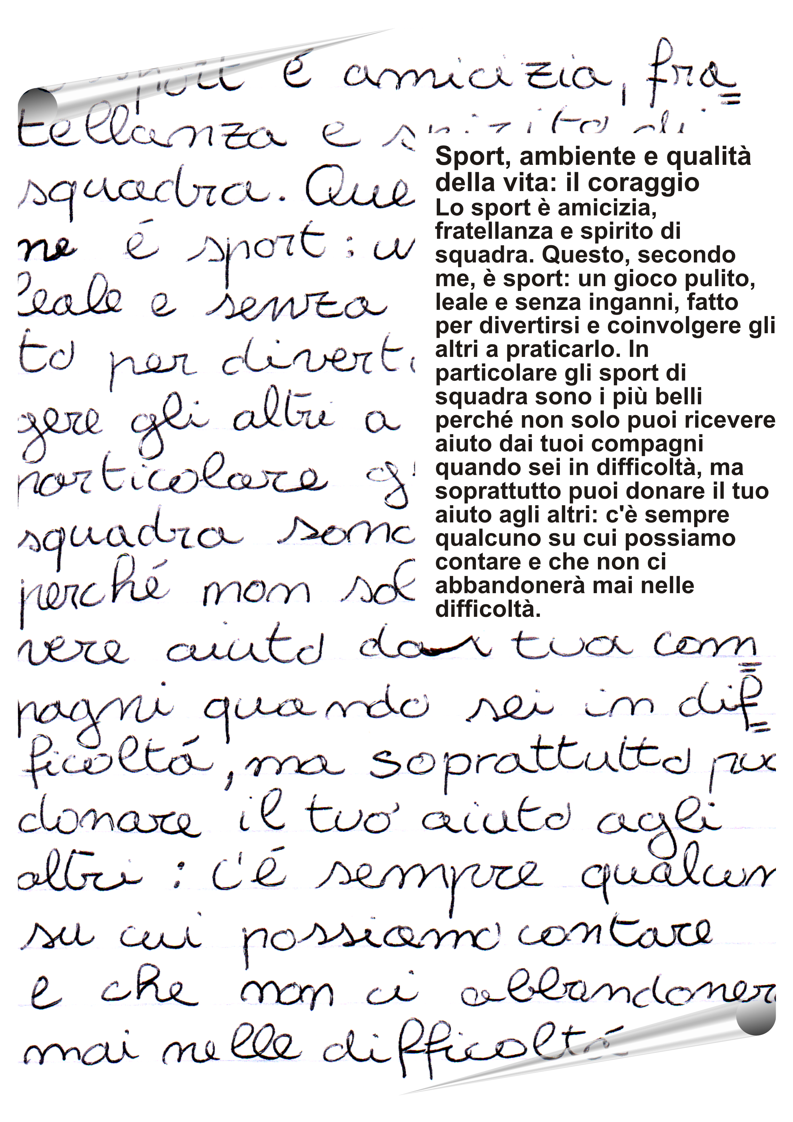 sport é amicizia, fra
tellanza e spirito di
squadra. Que
me é sport: u
leale e senza
to per diverti
gere gli altri a
particolare g
squadra sono
perché non sol
vere aiuto dai tuoi com
pagni quando sei in dif
ficoltá, ma soprattutto puo
donare il tuo aiuto agli
altri: c'é sempre qualcun
su cui possiamo contare
e che non ci abbandoner
mai nelle difficoltá
Sport, ambiente e qualità
della vita: il coraggio
Lo sport è amicizia,
fratellanza e spirito di
squadra. Questo, secondo
me, è sport: un gioco pulito,
leale e senza inganni, fatto
per divertirsi e coinvolgere gli
altri a praticarlo. In
particolare gli sport di
squadra sono i più belli
perché non solo puoi ricevere
aiuto dai tuoi compagni
quando sei in difficoltà, ma
soprattutto puoi donare il tuo
aiuto agli altri: c'è sempre
qualcuno su cui possiamo
contare e che non ci
abbandonerà mai nelle
difficoltà.